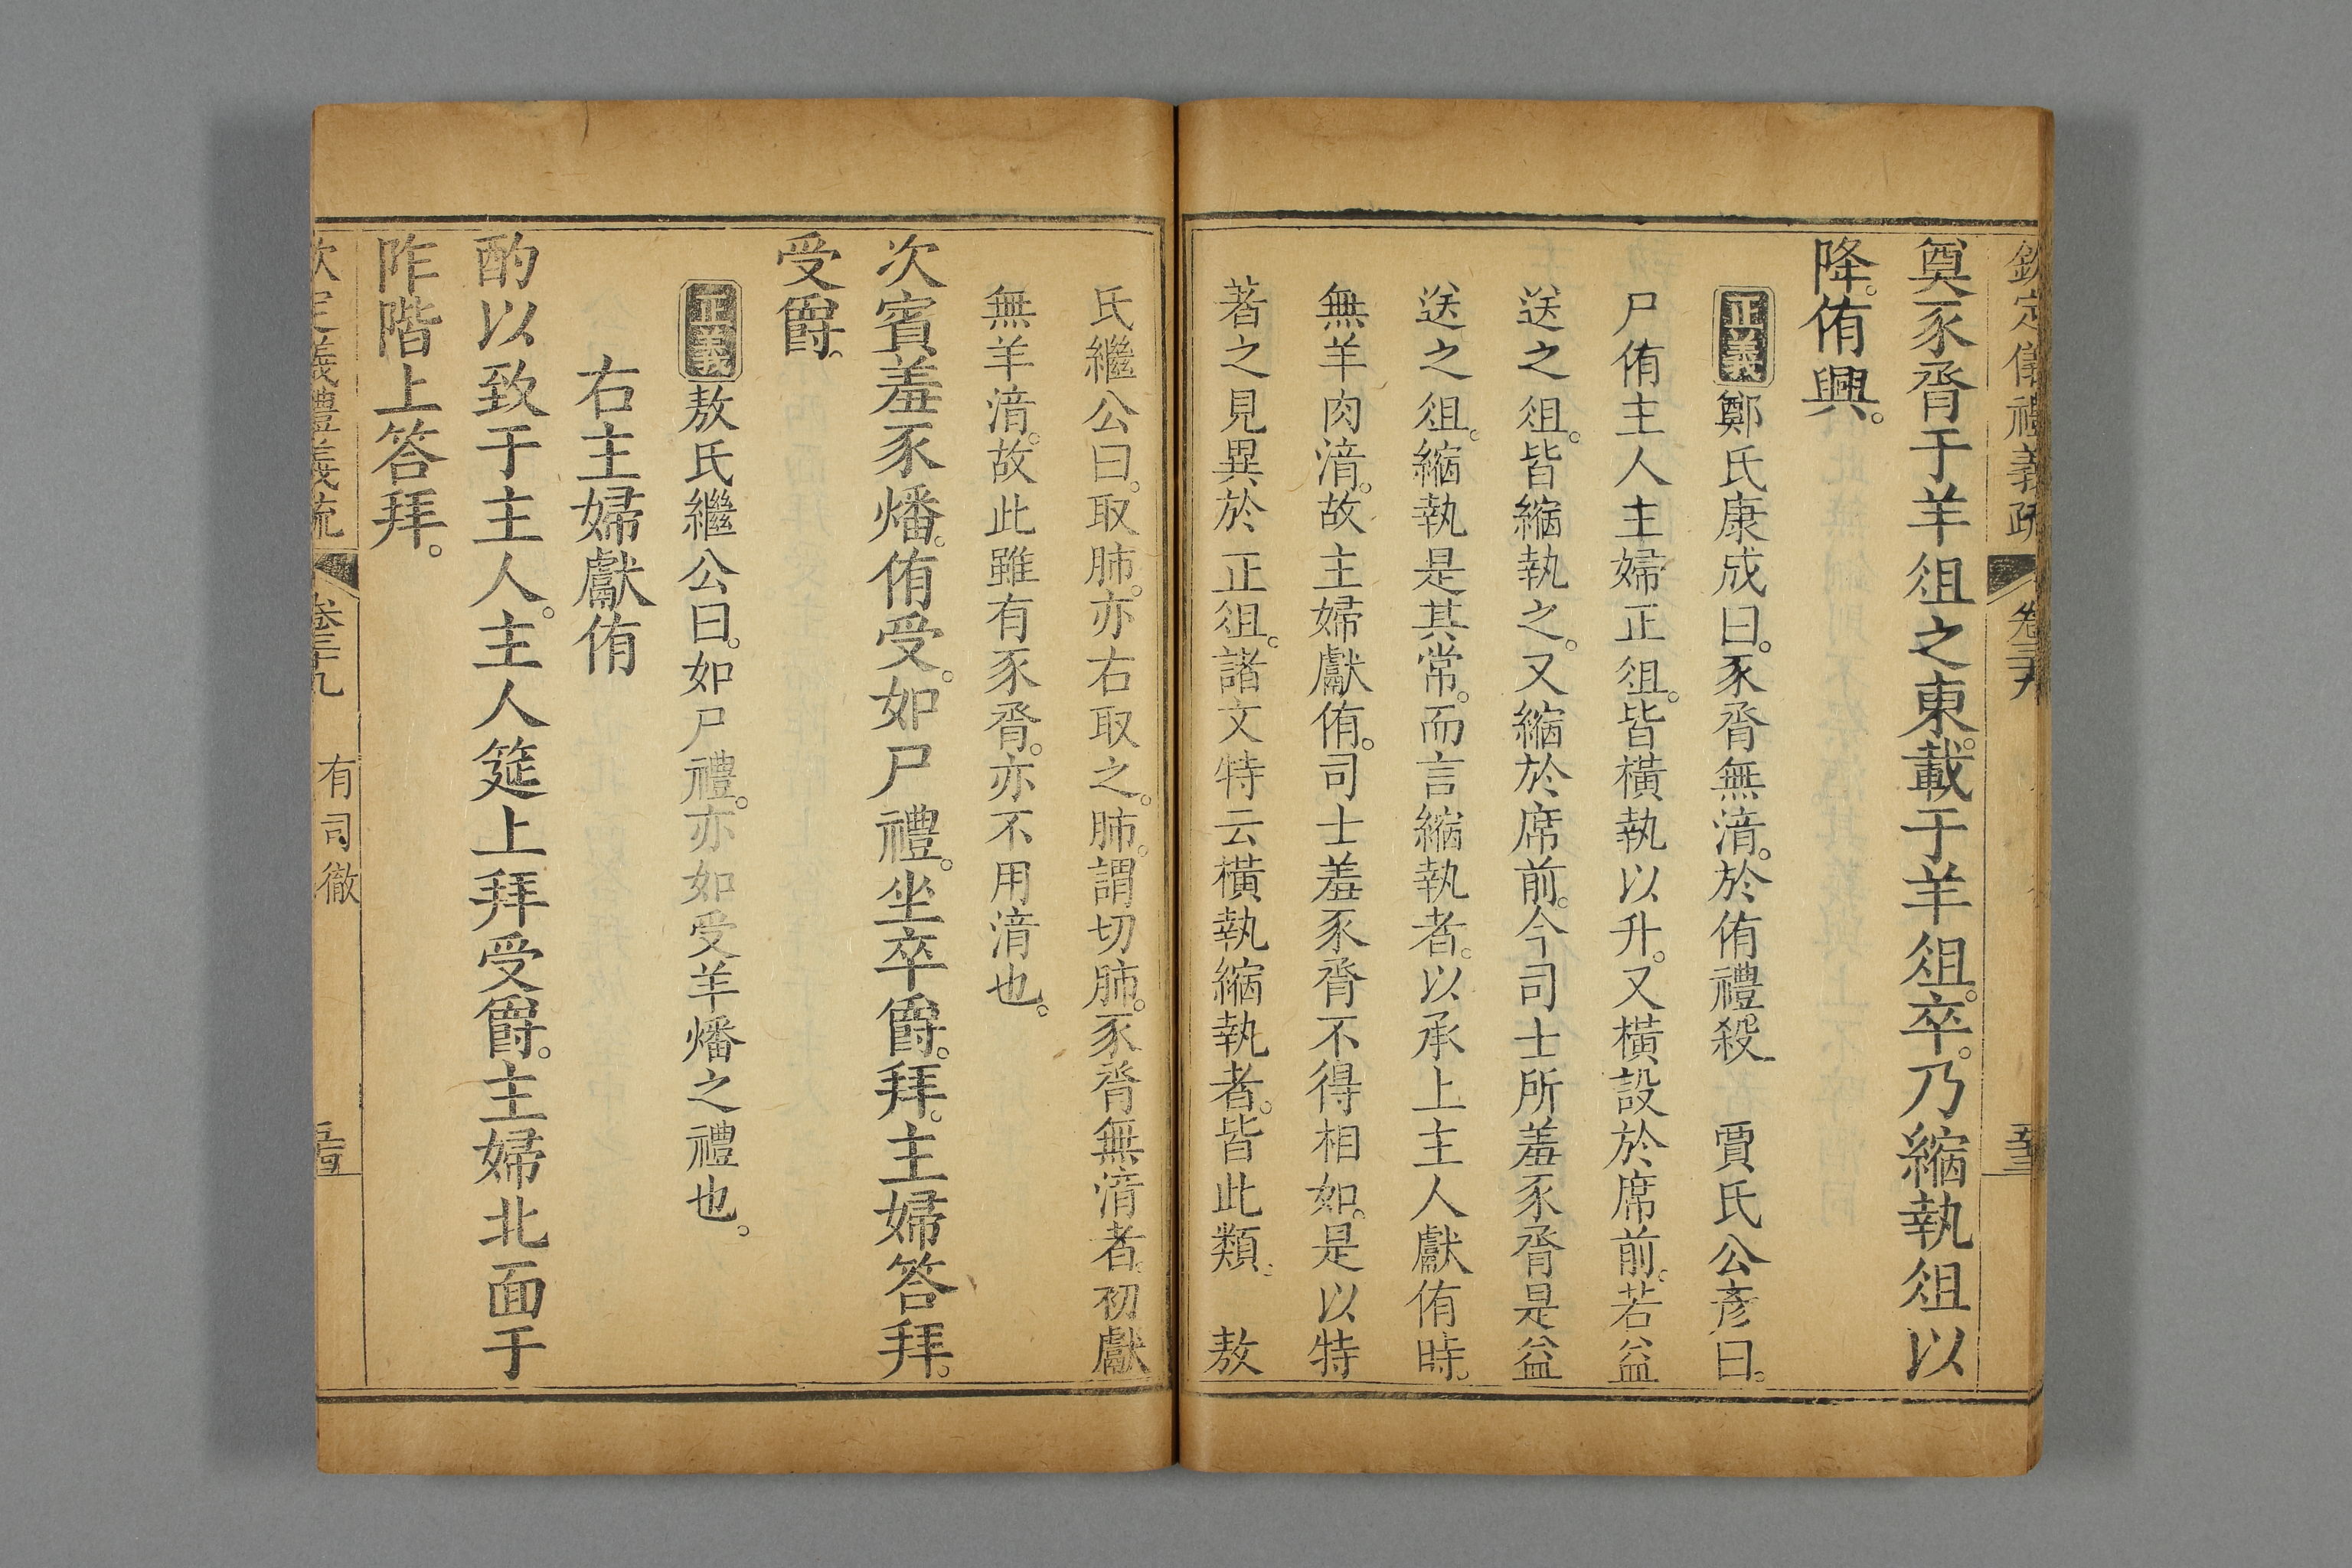 欽定儀禮義疏 卷三十九
奠豕脀于羊俎之東。載于羊俎。卒。乃縮執俎以
降。侑興。
正義 鄭氏康成曰。豕脀無湆。於侑禮殺 賈氏公彥曰。
尸侑主人主婦正俎。皆橫執以升。又橫設於席前。若益
送之俎。皆縮執之。又縮於席前。今司士所羞豕脀是益
送之俎。縮執是其常。而言縮執者。以承上主人獻侑時。
無羊肉湆。故主婦獻侑。司士羞豕脀不得相如。是以特
著之見異於正俎。諸文特云橫執縮執者。皆此類。 敖
氏繼公曰。取肺。亦右取之。肺。謂切肺。豕脀無湆者。初獻
無羊湆。故此雖有豕脀。亦不用湆也。
次賓羞豕燔。侑受。如尸禮。坐卒爵。拜。主婦答拜。
受爵。
正義 敖氏繼公曰。如尸禮。亦如受羊燔之禮也。
右主婦獻侑
酌以致于主人。主人筵上拜受爵。主婦北面于
阼階上答拜。
欽定義禮義疏 卷三十九 有司徹